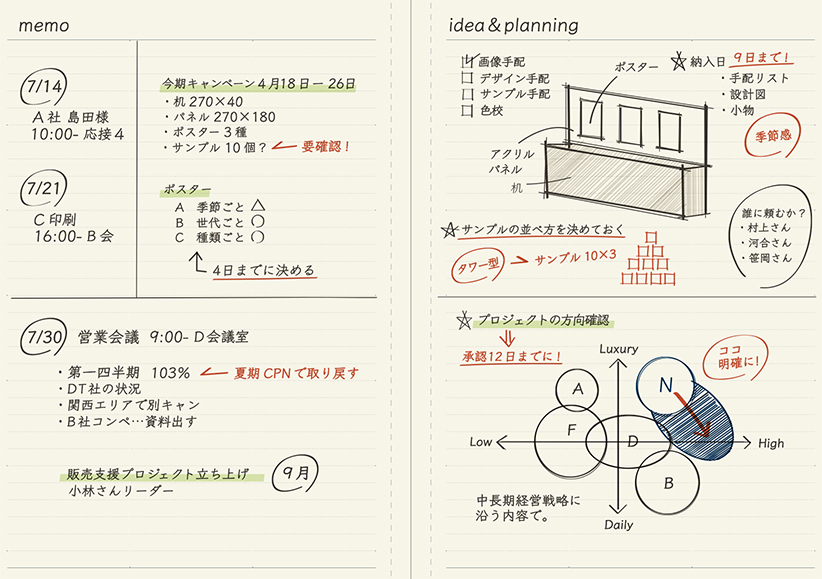 memo
7/14
A社 島田様
10:00- 応接4
今期キャンペーン4月18日ー26日
・机 270×40
・パネル 270×180
・ポスター3種
・サンプル10個？ ← 要確認！
7/21
C印刷
16:00- B会
ポスター
A 季節ごと △
B 世代ごと ○
C 種類ごと ○
4日までに決める
7/30 営業会議 9:00- D会議室
・第一四半期 103% ← 夏期CPNで取り戻す
・DT社の状況
・関西エリアで別キャン
・B社コンペ…資料出す
販売支援プロジェクト立ち上げ 9月
小林さんリーダー
idea & planning
画像手配
デザイン手配
サンプル手配
色校
ポスター
アクリル
パネル
机
☆納入日 9日まで！
・手配リスト
・設計図
・小物
季節感
誰に頼むか？
・村上さん
・河合さん
・笹岡さん
☆サンプルの並べ方を決めておく
タワー型 → サンプル10×3
☆プロジェクトの方向確認
承認12日までに！
Luxury
ココ
明確に！
A
N
F
D
Low
High
B
中長期経営戦略に
沿う内容で。
Daily